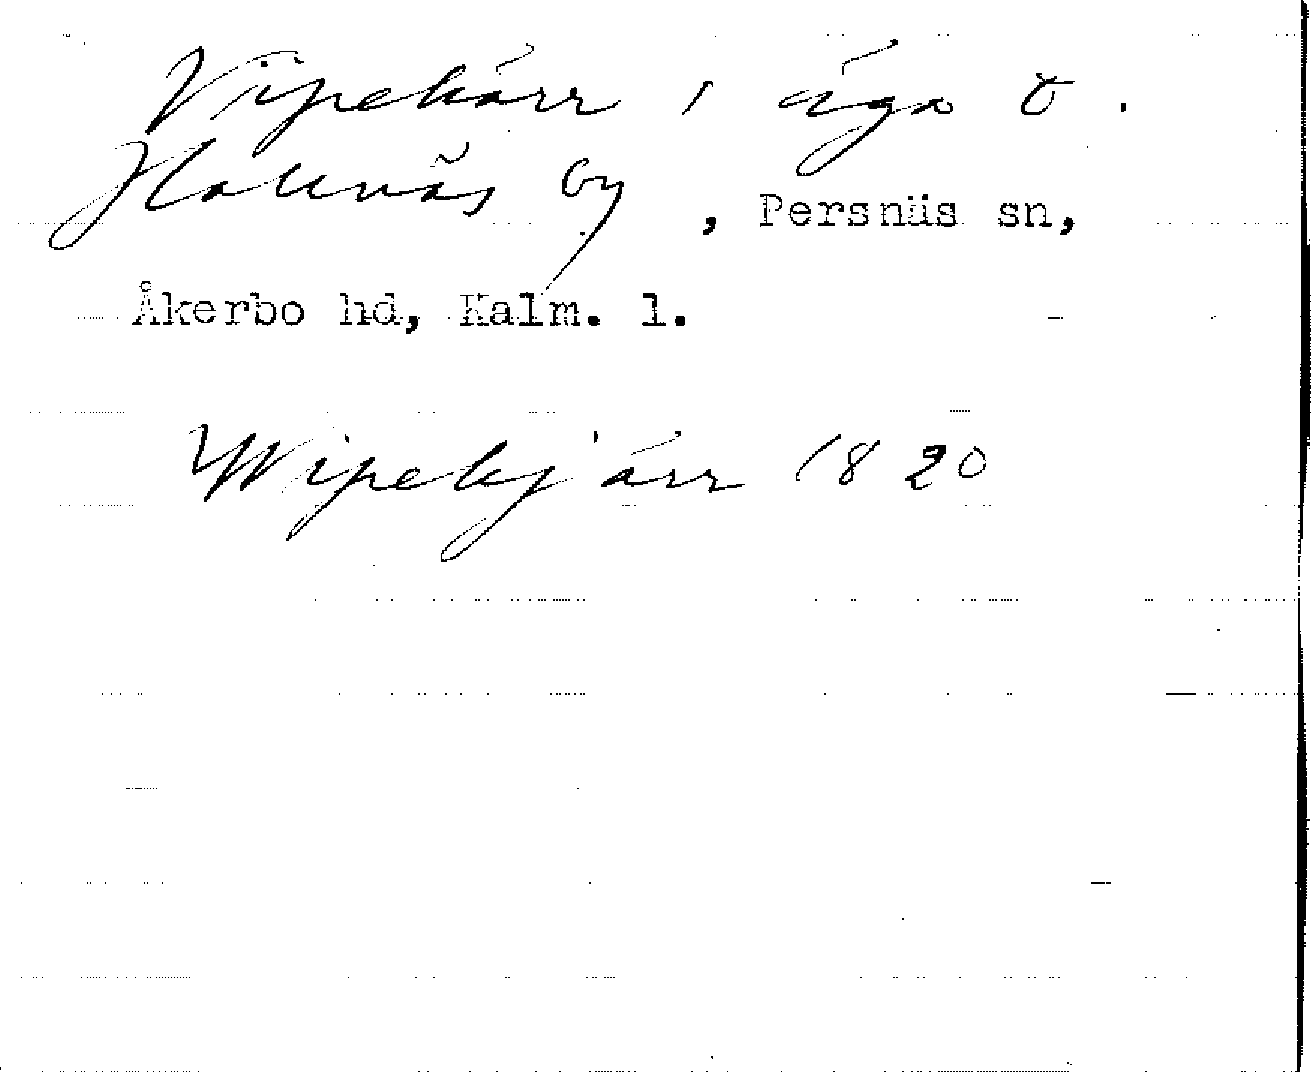 Vipekärr, äga t.
Hallnäs by, Persnäs sn,
Åkerbo hd, Kalm. l.
Wipekjärr 1820